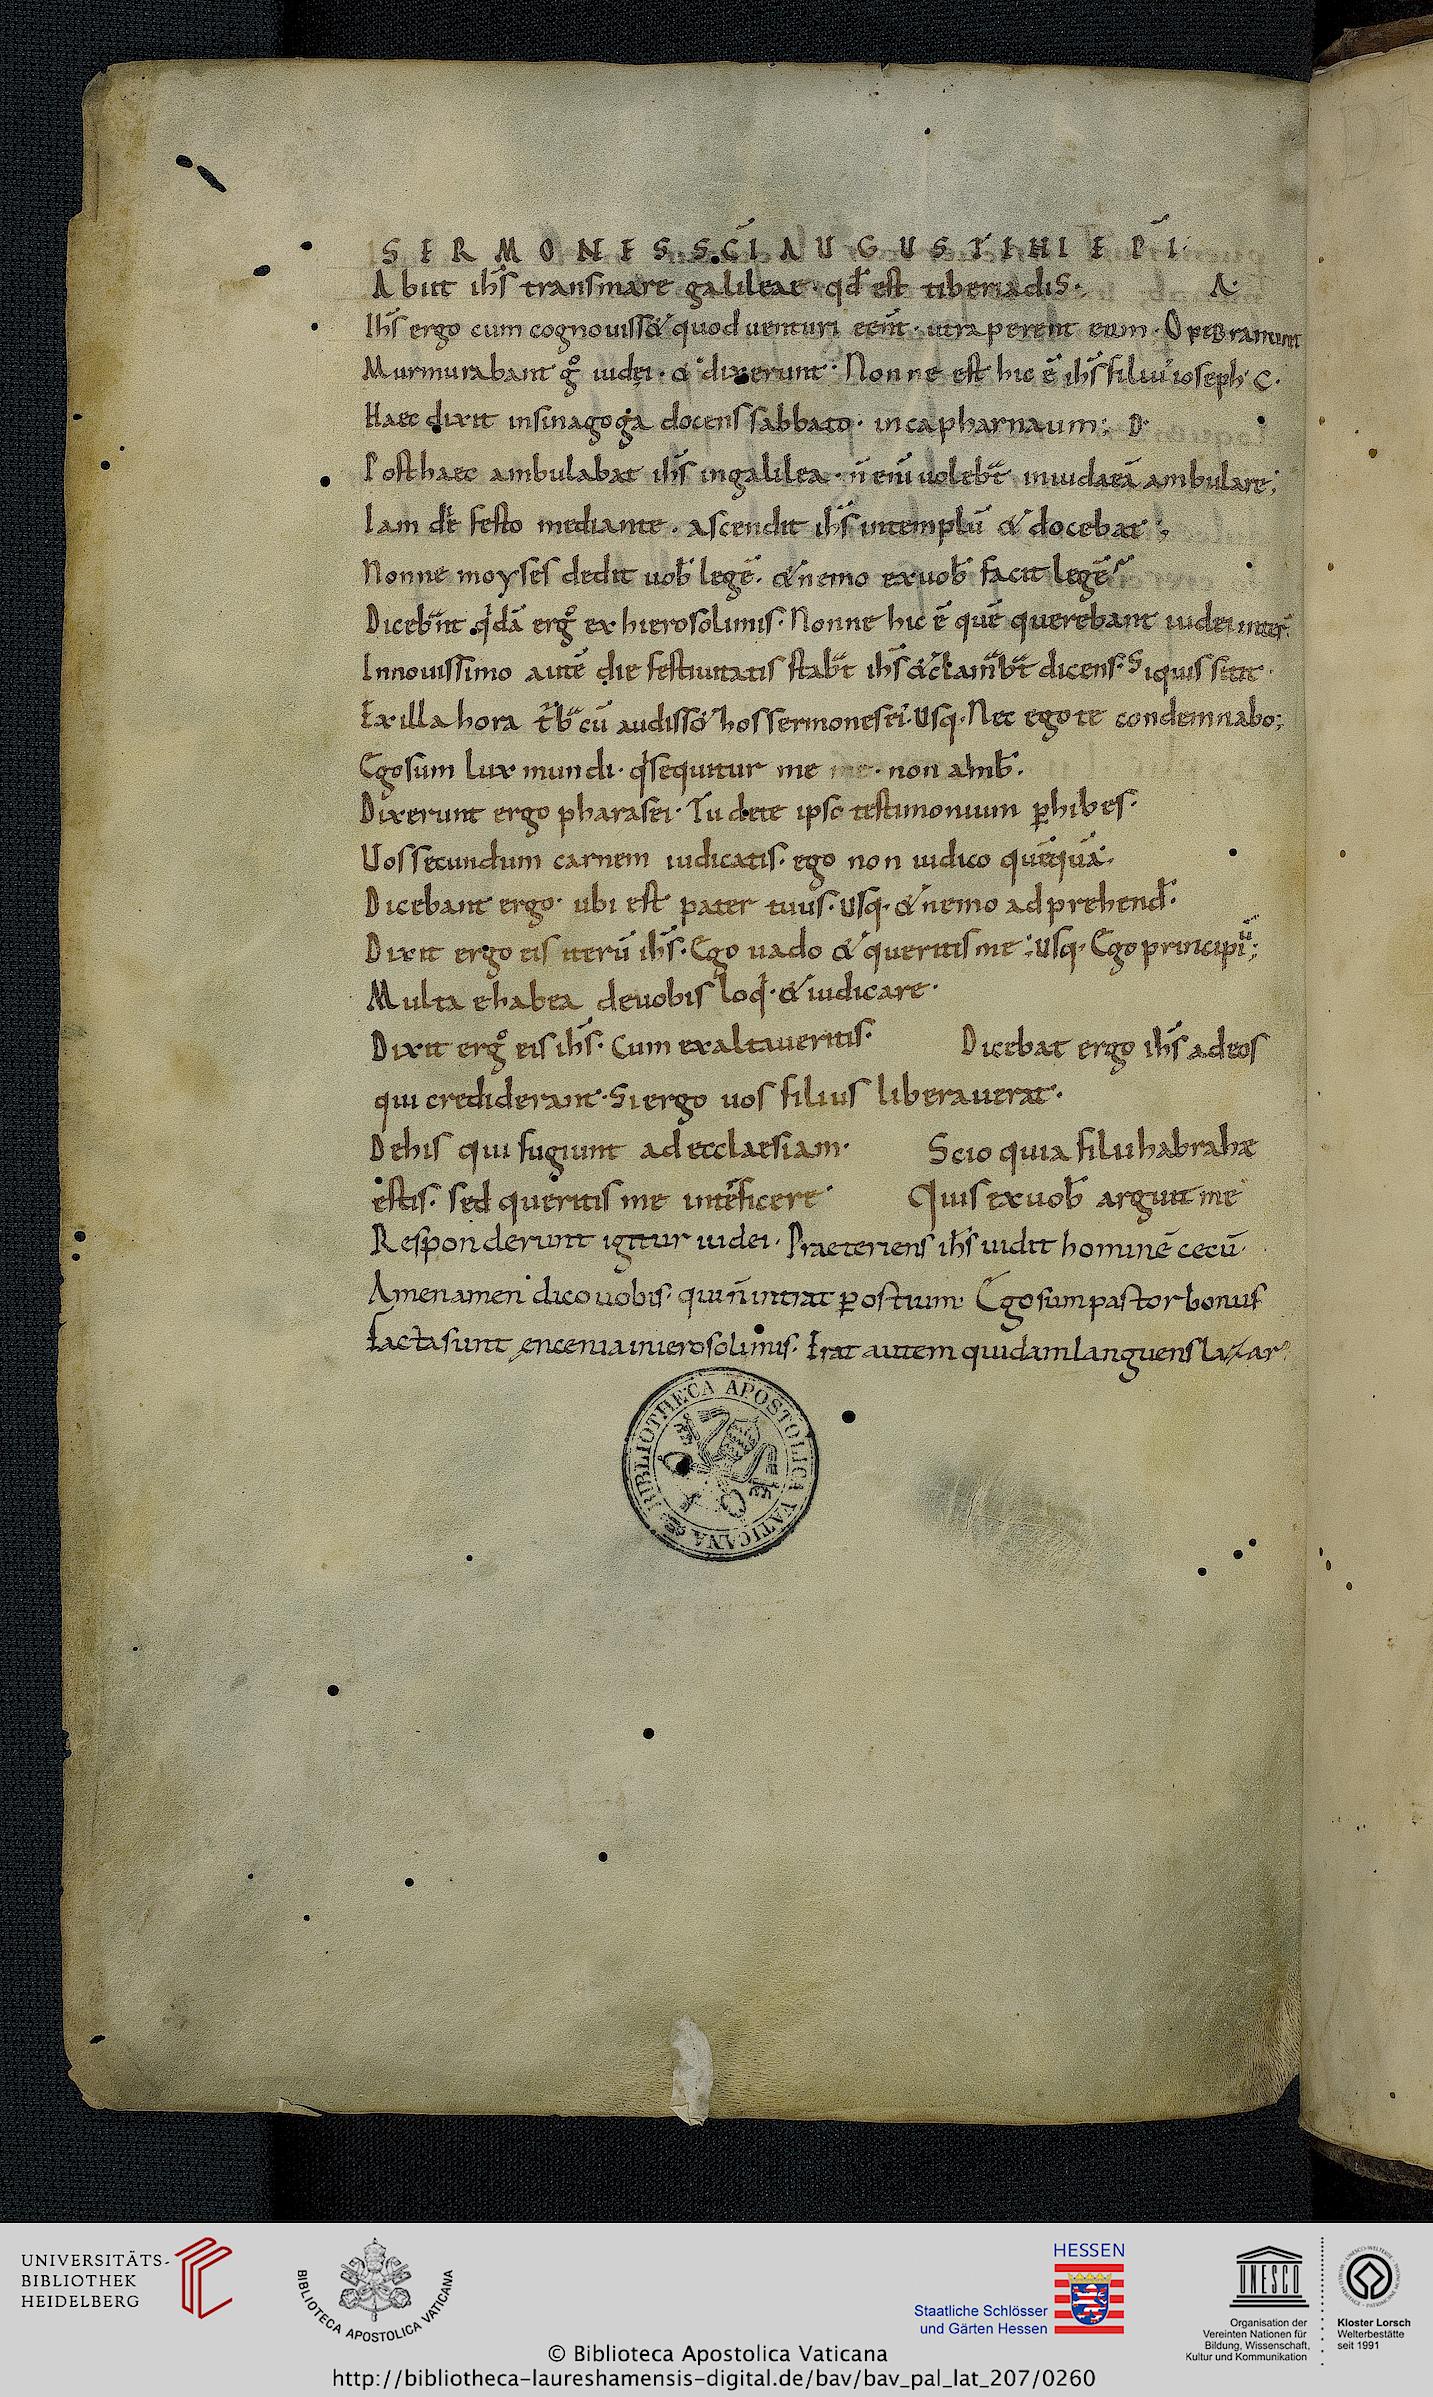 SERMONES SC̄I AUGUSTINI EP̄I·
Abiit ih̄s transmare galileae · qd̄ est tiberiadis · A·
Ih̄s ergo cum cognouiss& quod uenturi eēnt · utraperent eum ·
Murmurabant gͦ iudei · & dixerunt · Nonne est hic ē ih̄s filiu' ioseph C·
Haec dixit insinagoga docens sabbato · incapharnaum; D·
Posthaec ambulabat ih̄s ingalilea · n̄ eni uolebt̄ iniudaeā ambulare;
Iam festo mediante · ascendit ih̄s intemplū & docebat;
Nonne moyses dedit uob̄ legē · & nemo exuob̄ facit legē
Diceb̄nt qͥdā ergͦ ex hierosolimis · Nonne hic ē quē querebant iudei
Innouissimo autē die festiuitatis stab̄t ih̄s & dicens · Siquis sitit ·
Exilla hora cū audiss& hos sermones ei' · Usq · Nec ego te condemnabo;
Ego sum lux mundi · qͥ sequitur me me · non amb̄ ·
Dixerunt ergo pharasei · Tu dete ipso testimonium ꝑhibes ·
Uos secundum carnem iudicatis · ego non iudico quēquā ·
Dicebant ergo · ubi est pater tuus · Usq · & nemo adprehend̄ ·
Dixit ergo eis iterū ih̄s · Ego uado & queritis me · Usq · Ego principiū;
Multa ehabea deuobis loqͥ · & iudicare ·
Dixit ergͦ eis ih̄s · Cum exaltaueritis · Dicebat ergo ih̄s adeos
qui crediderant · Si ergo uos filius liberauerat ·
Dehis qui fugiunt adecclaesiam · Scio quia filii habrahę
estis · sed queritis me inteficere · Quis exuob̄ arguit me
Responderunt igitur iudei · Praeteriens ih̄s uidit hominē cecū ·
Amen amen dico uobis · qui n̄ intrat ꝑ ostium · Ego sum pastor bonus
Facta sunt encenia inierosolimis · Erat autem quidam languens lazar'
BIBLIOTHECA APOSTOLICA VATICANA
UNIVERSITÄTS-
BIBLIOTHEK
HEIDELBERG
BIBLIOTECA APOSTOLICA VATICANA
HESSEN
Staatliche Schlösser
und Gärten Hessen
UNESCO
Organisation der
Vereinten Nationen für
Bildung, Wissenschaft,
Kultur und Kommunikation
Kloster Lorsch
Welterbestätte
seit 1991
© Biblioteca Apostolica Vaticana
http://bibliotheca-laureshamensis-digital.de/bav/bav_pal_lat_207/0260